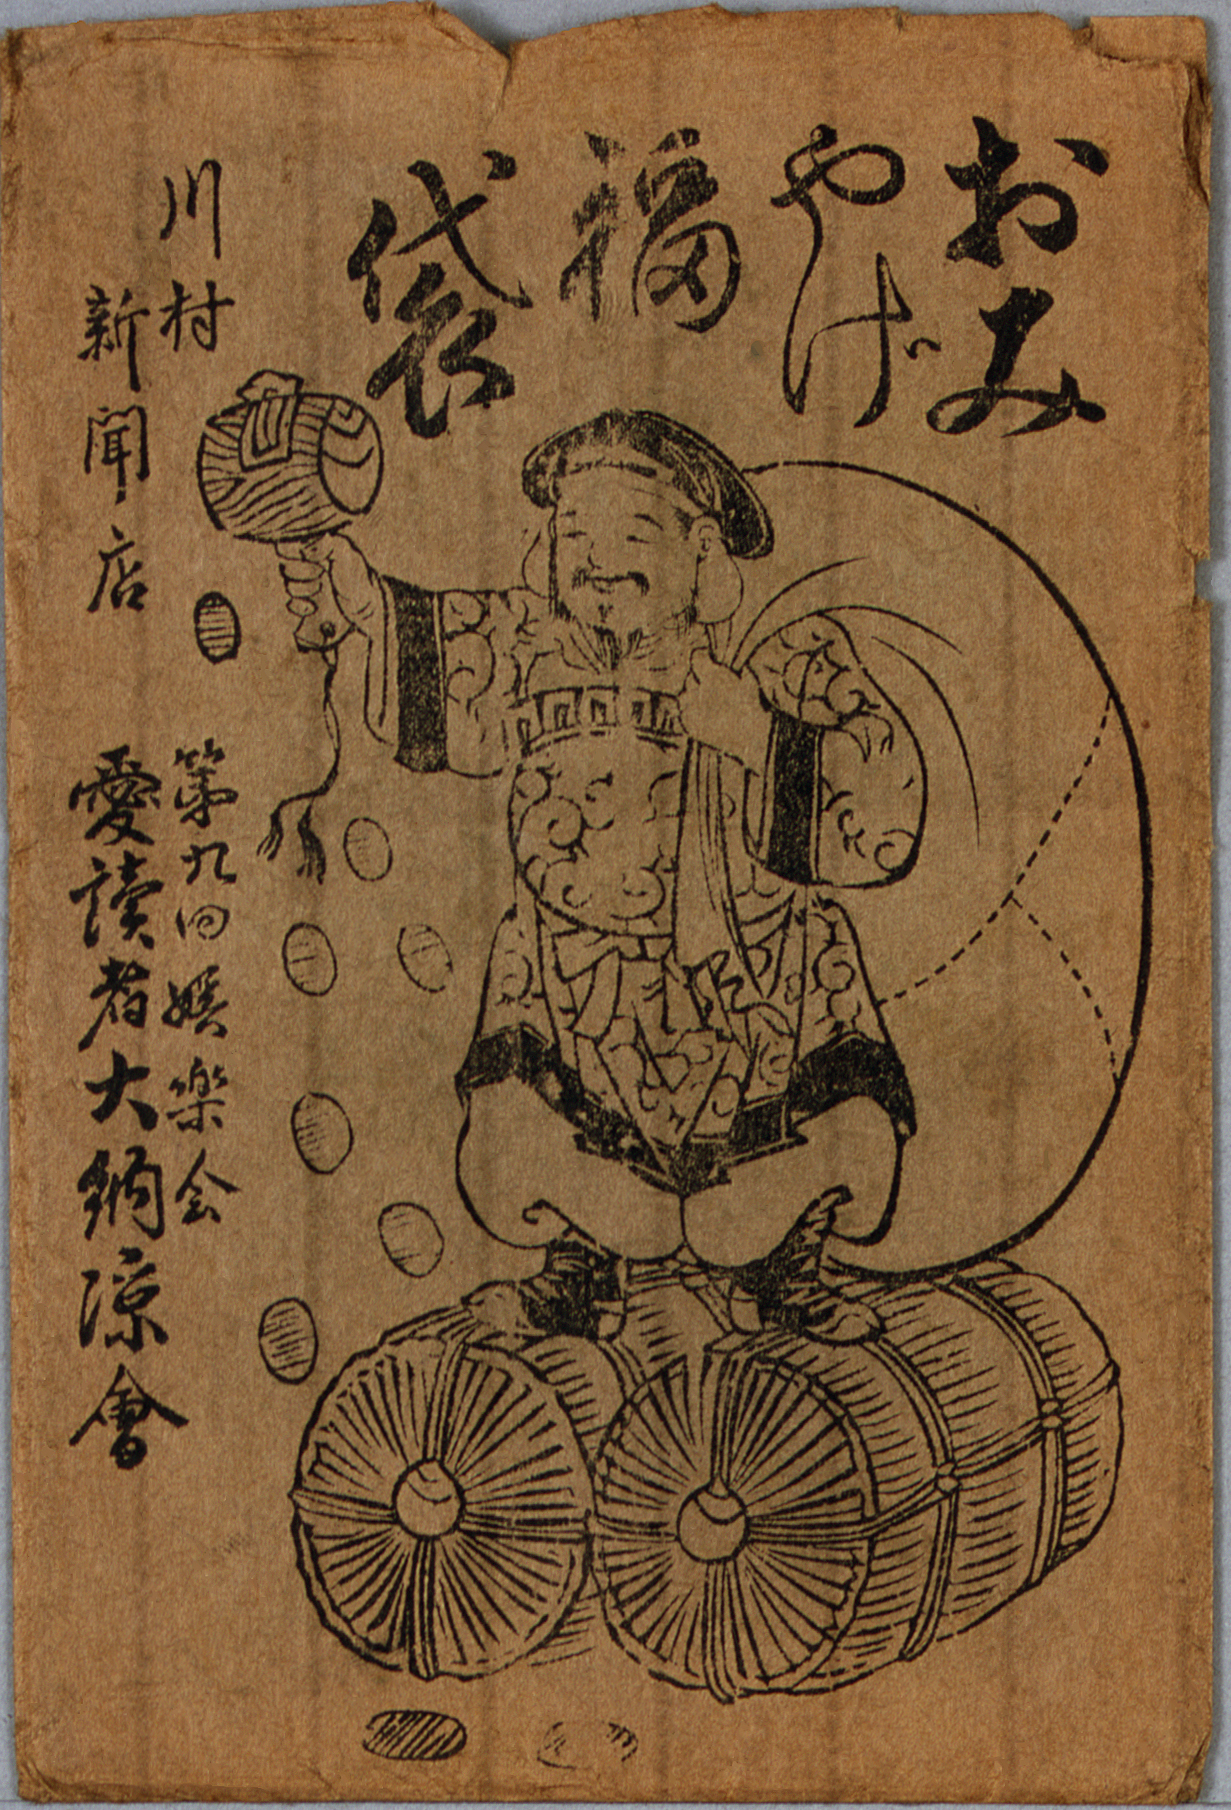 おみ
やげ
福
袋
川村
新聞店
第九回娯楽会
愛讀者大納涼會